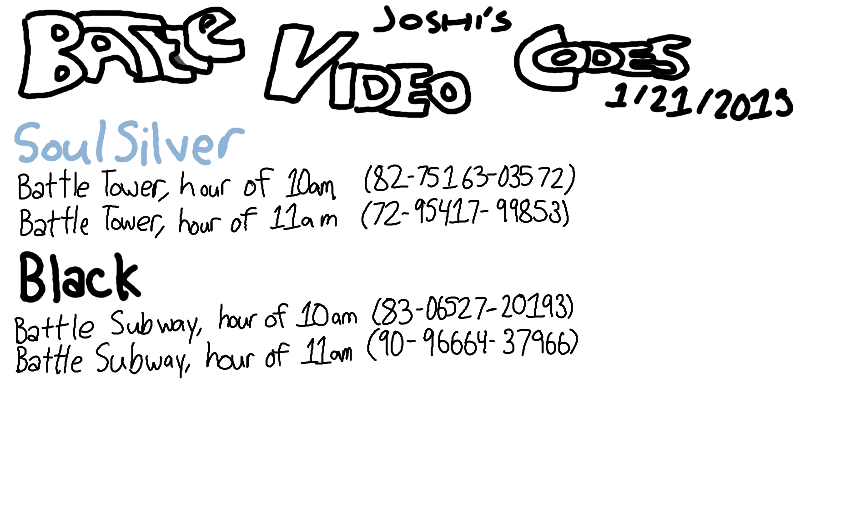 JOSHI'S
BATTLE VIDEO CODES
1/21/2013
SoulSilver
Battle Tower, hour of 10am (82-75163-03572)
Battle Tower, hour of 11am (72-95417-99853)
Black
Battle Subway, hour of 10am (83-06527-20193)
Battle Subway, hour of 11am (90-96664-37966)